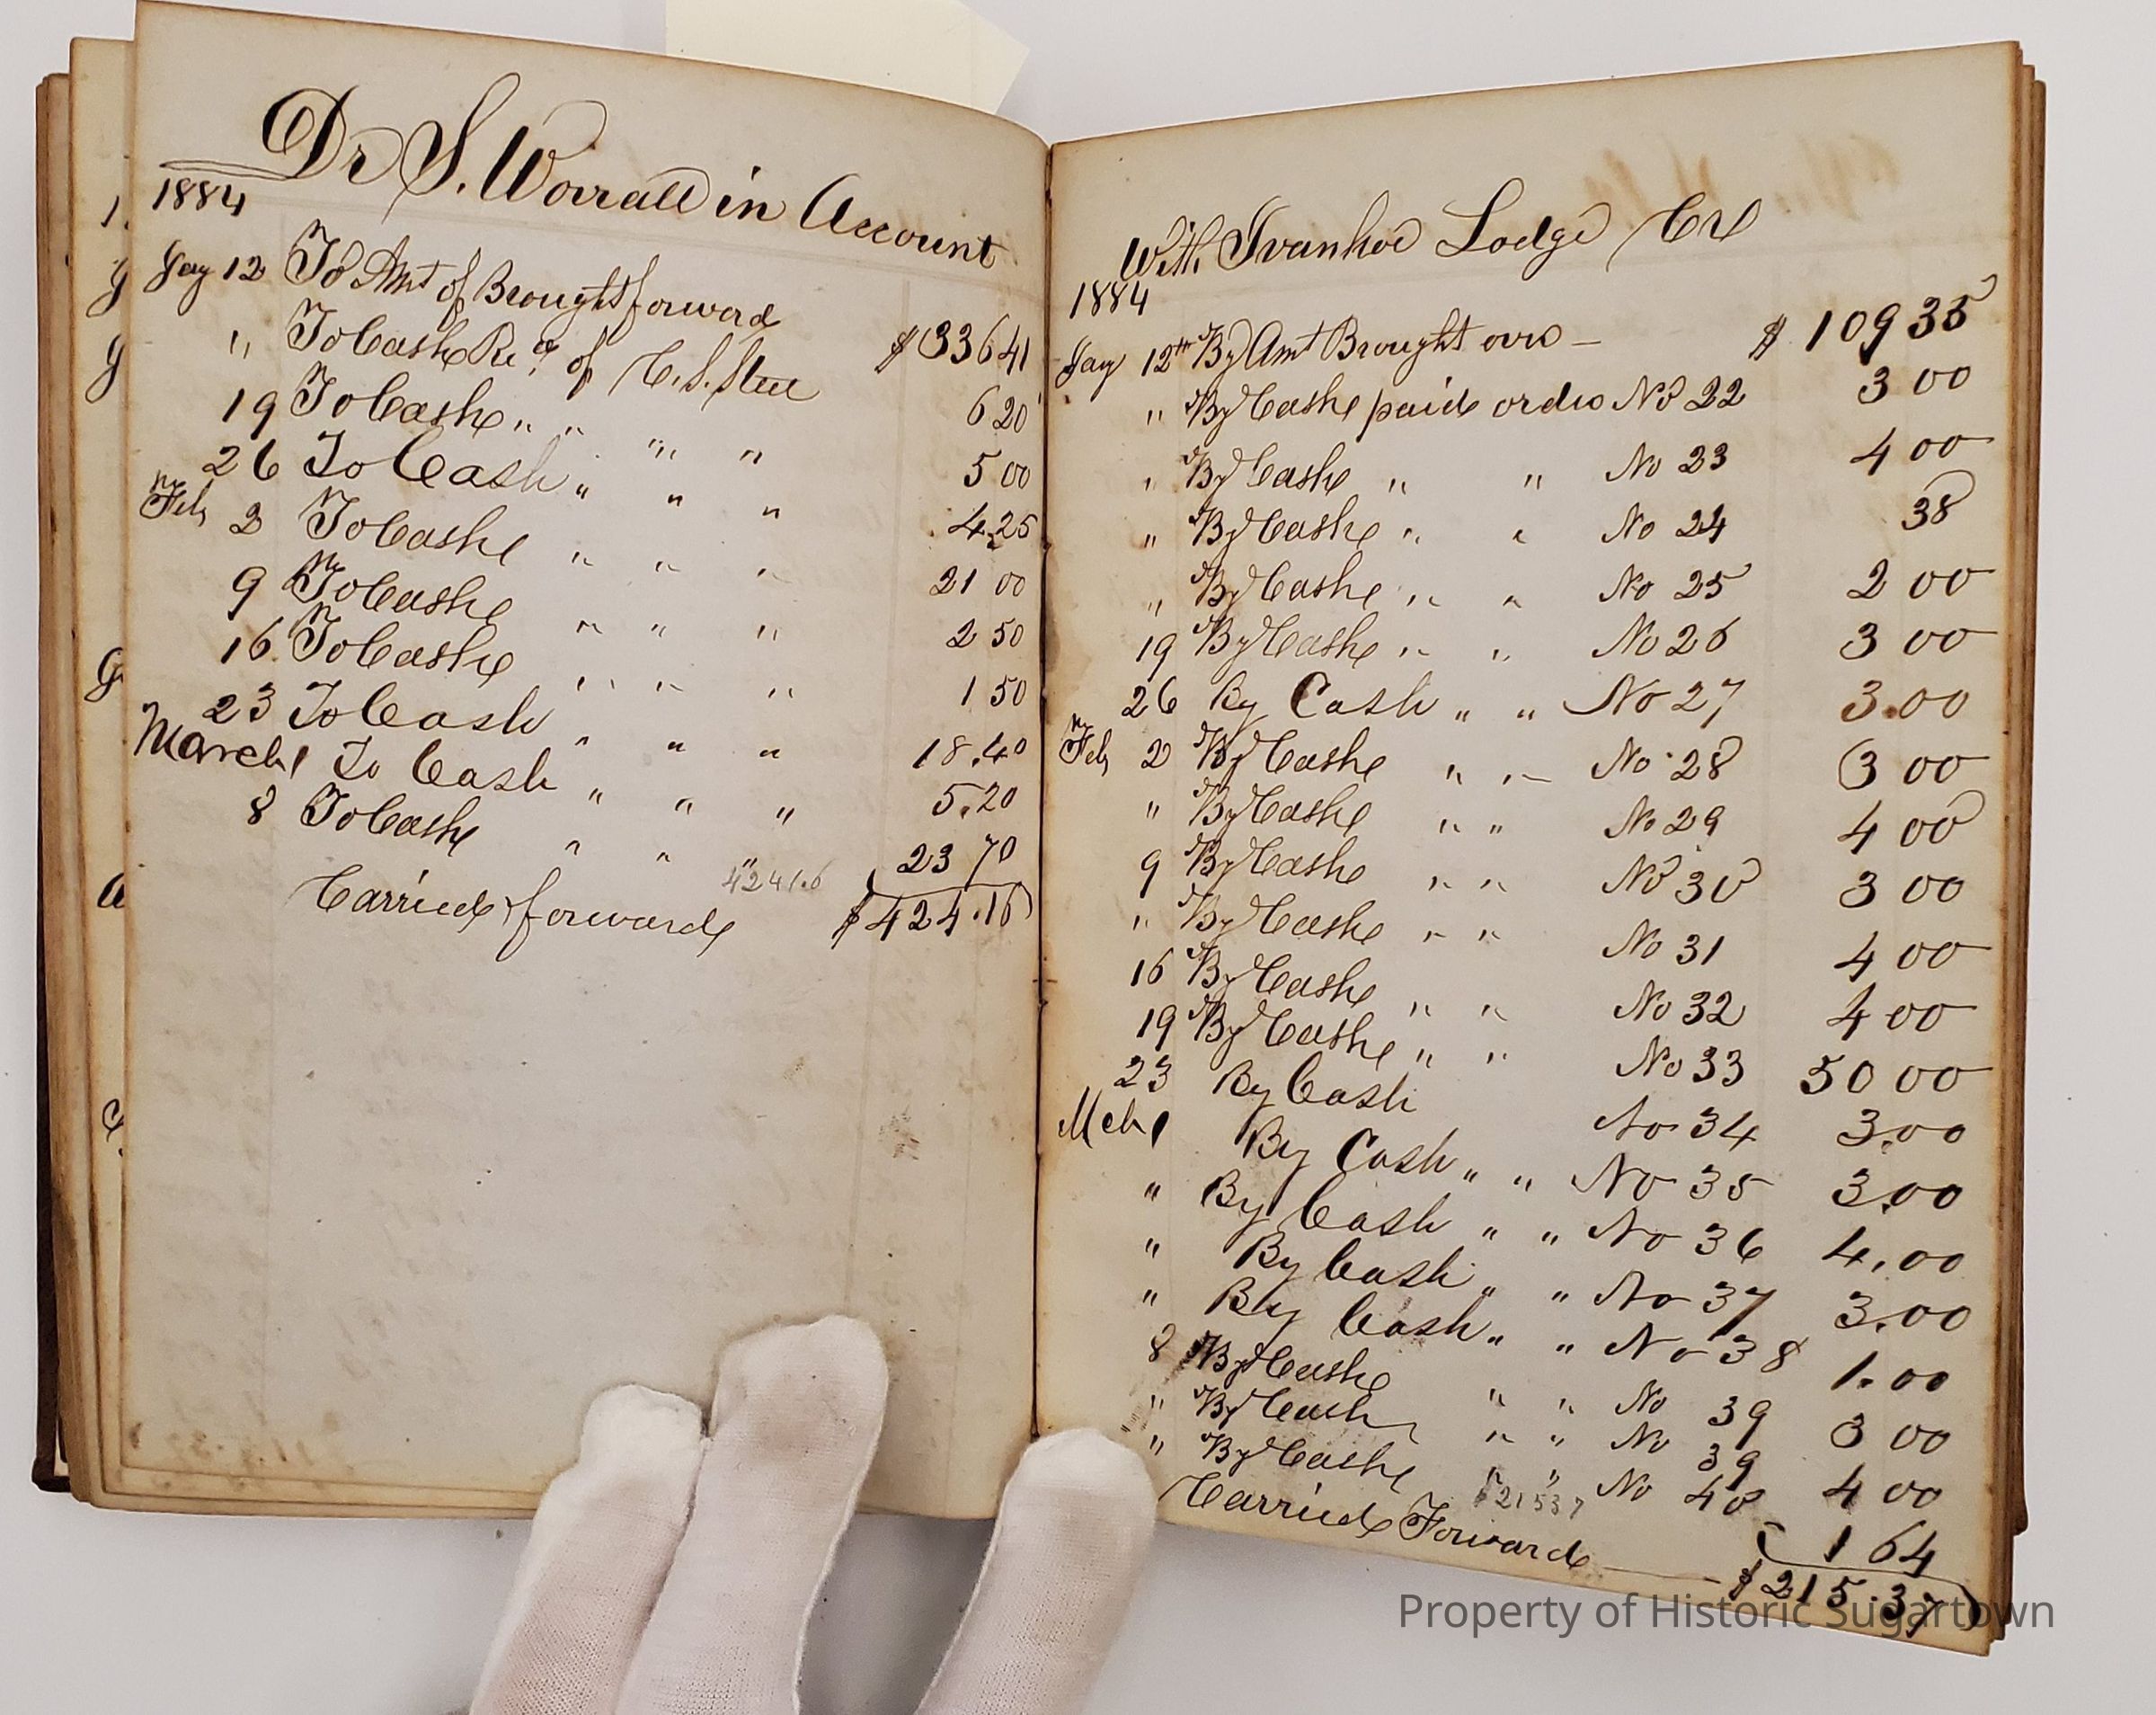 Dr S. Worrall in Account
1884
Jay 12 To Amt of Brought forward $336 41
" To Cash Rec'd of C. S. Steel 6 20
19 To Cash " " " " 5 00
26 To Cash " " " 4.25
Feb 2 To Cash " " " 21 00
9 To Cash " " " 2 50
16 To Cash " " " 1 50
23 To Cash " " " 18.40
March 1 To Cash " " " 5.20
8 To Cash " " " 23 70
42416
Carried forward $424.16
With Ivanhoe Lodge Cr
1884
Jay 12th By Amt Brought over — $109 35
" By Cash paid order No 22 3 00
" By Cash " " No 23 4 00
" By Cash " " No 24 38
" By Cash " " No 25 2 00
19 By Cash " " No 26 3 00
26 By Cash " " No 27 3.00
Feb 2 By Cash " " No 28 3 00
" By Cash " " No 29 4 00
9 By Cash " " No 30 3 00
" By Cash " " No 31 4 00
16 By Cash " " No 32 4 00
19 By Cash " " No 33 50 00
23 By Cash No 34 3.00
Mch 1 By Cash " " No 35 3.00
" By Cash " " No 36 4.00
" By Cash " " No 37 3.00
" By Cash " " No 38 1.00
8 By Cash " " No 39 3 00
" By Cash " " No 39 4 00
" By Cash " " No 40 1 64
21537
Carried Forward — $215.37
Property of Historic Sugartown